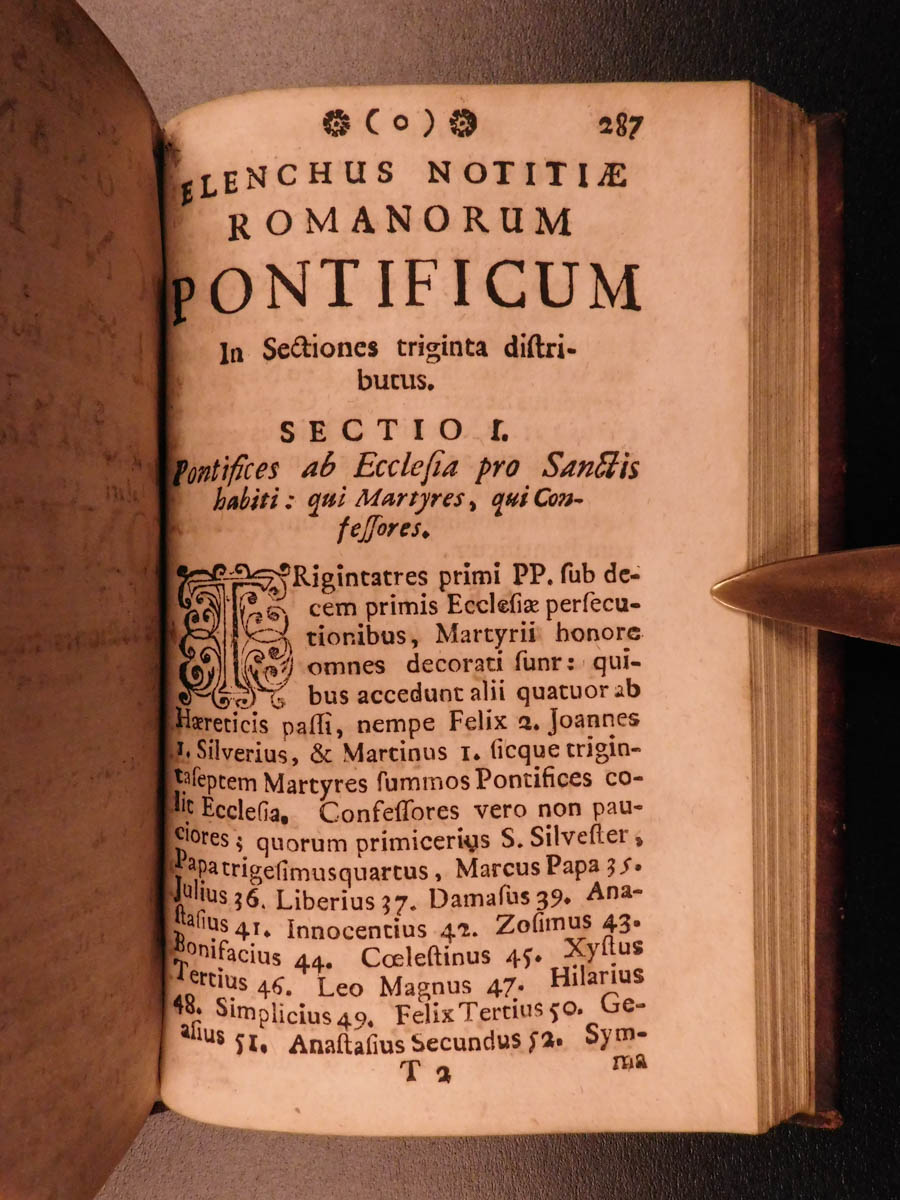 (o) 287
ELENCHUS NOTITIÆ
ROMANORUM
PONTIFICUM
In Sectiones triginta diſtri-
butus.
SECTIO I.
Pontifices ab Eccleſia pro Sanctis
habiti: qui Martyres, qui Con-
feſſores.
TRigintatres primi PP. ſub de-
cem primis Eccleſiæ perſecu-
tionibus, Martyrii honore
omnes decorati ſunr: qui-
bus accedunt alii quatuor ab
Hæreticis paſſi, nempe Felix 2. Joannes
1. Silverius, & Martinus 1. ſicque trigin-
taſeptem Martyres ſummos Pontifices co-
lit Eccleſia. Confeſſores vero non pau-
ciores; quorum primicerius S. Silveſter,
Papa trigeſimusquartus, Marcus Papa 35.
Julius 36. Liberius 37. Damaſus 39. Ana-
ſtaſius 41. Innocentius 42. Zoſimus 43.
Bonifacius 44. Cœleſtinus 45. Xyſtus
Tertius 46. Leo Magnus 47. Hilarius
48. Simplicius 49. Felix Tertius 50. Ge-
aſius 51. Anaſtaſius Secundus 52. Sym-
T 2 ma